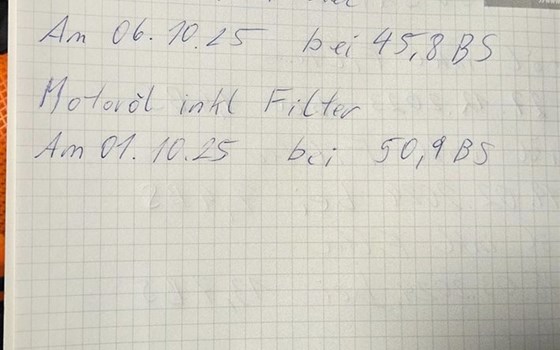 Am 06.10.25 bei 45,8 BS
Motoröl inkl Filter
Am 01.10.25 bei 50,9 BS